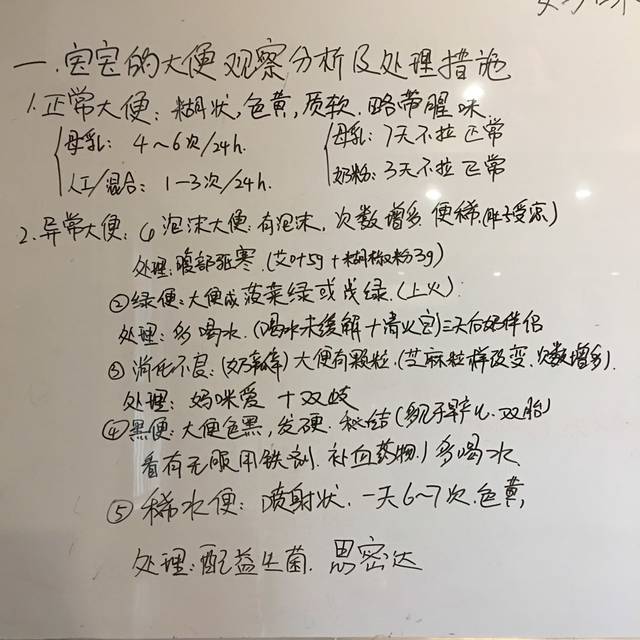 一.宝宝的大便观察分析及处理措施
1.正常大便:糊状,色黄,质软.略带腥味.
母乳:4~6次/24h.
人工/混合:1-3次/24h.
母乳:7天不拉正常
奶粉:3天不拉正常
2.异常大便:① 泡沫大便:有泡沫,次数增多.便稀.(肚子受凉)
处理:腹部驱寒.(艾叶5g+糊椒粉3g)
②绿便:大便成菠菜绿或浅绿.(上火):
处理:多喝水.(喝水未缓解+清火宝)三天后好伴侣
③ 消化不良:(奶瓣) 大便有颗粒.(芝麻粒样改变.次数增多).
处理:妈咪爱 +双歧
④黑便:大便色黑,发硬.秘结(多见于早产儿.双胎)
看有无服用铁剂.补血药物.)多喝水
⑤ 稀水便:喷射状.一天6~7次.色黄,
处理:配益生菌.思密达